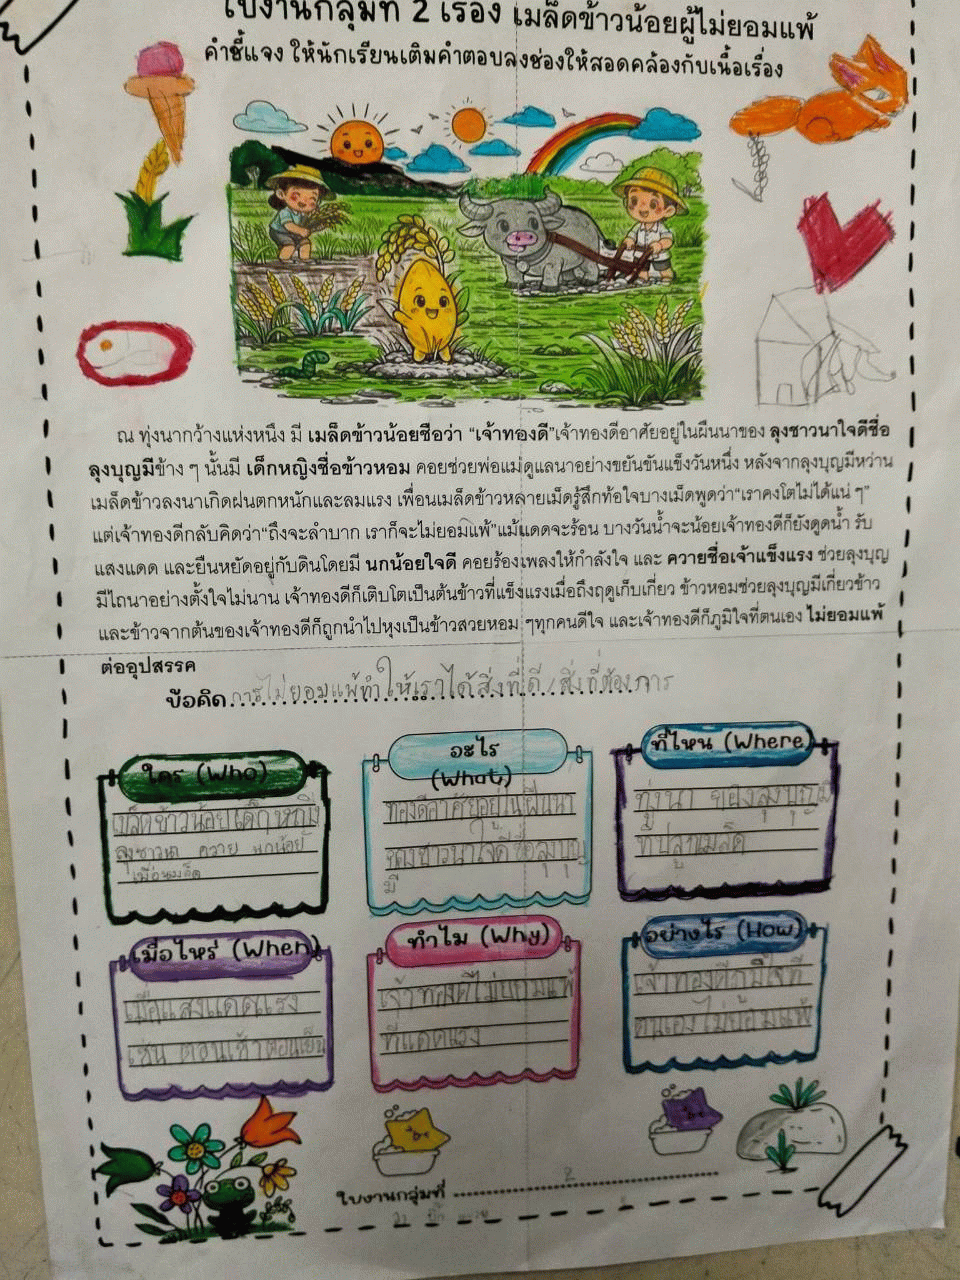 ใบงานกลุ่มที่ 2 เรื่อง เมล็ดข้าวน้อยผู้ไม่ยอมแพ้
คำชี้แจง ให้นักเรียนเติมคำตอบลงช่องให้สอดคล้องกับเนื้อเรื่อง
ณ ทุ่งนากว้างแห่งหนึ่ง มี เมล็ดข้าวน้อยชื่อว่า "เจ้าทองดี"เจ้าทองดีอาศัยอยู่ในผืนนาของ ลุงชาวนาใจดีชื่อ
ลุงบุญมีข้าง ๆ นั้นมี เด็กหญิงชื่อข้าวหอม คอยช่วยพ่อแม่ดูแลนาอย่างขยันขันแข็งวันหนึ่ง หลังจากลุงบุญมีหว่าน
เมล็ดข้าวลงนาเกิดฝนตกหนักและลมแรง เพื่อนเมล็ดข้าวหลายเม็ดรู้สึกท้อใจบางเม็ดพูดว่า"เราคงโตไม่ได้แน่ ๆ"
แต่เจ้าทองดีกลับคิดว่า"ถึงจะลำบาก เราก็จะไม่ยอมแพ้"แม้แดดจะร้อน บางวันน้ำจะน้อยเจ้าทองดีก็ยังดูดน้ำ รับ
แสงแดด และยืนหยัดอยู่กับดินโดยมี นกน้อยใจดี คอยร้องเพลงให้กำลังใจ และ ควายชื่อเจ้าแข็งแรง ช่วยลุงบุญ
มีไถนาอย่างตั้งใจไม่นาน เจ้าทองดีก็เติบโตเป็นต้นข้าวที่แข็งแรงเมื่อถึงฤดูเก็บเกี่ยว ข้าวหอมช่วยลุงบุญมีเกี่ยวข้าว
และข้าวจากต้นของเจ้าทองดีก็ถูกนำไปหุงเป็นข้าวสวยหอม ๆทุกคนดีใจ และเจ้าทองดีก็ภูมิใจที่ตนเอง ไม่ยอมแพ้
ต่ออุปสรรค
ข้อคิด การไม่ยอมแพ้ทำให้เราได้สิ่งที่ดี/สิ่งที่ต้องการ
ใคร (Who)
เมล็ดข้าวน้อย เด็กหญิง
ลุงชาวนา ควาย นกน้อย
เพื่อนเมล็ด
อะไร
(What)
ทองดีอาศัยอยู่ในผืนนา
ของชาวนาใจดีชื่อลุงบุญ
มี
ที่ไหน (Where)
ทุ่งนา ของลุงบุญมี
ที่ปลูกเมล็ด
เมื่อไหร่ (When)
เมื่อแสงแดดแรง
เช่น ตอนเช้า ตอนเย็น
ทำไม (Why)
เจ้าทองดีไม่ยอมแพ้
ที่แดดแรง
อย่างไร (How)
เจ้าทองดีภูมิใจที่
ตนเองไม่ย้อมแพ้
ใบงานกลุ่มที่ 2